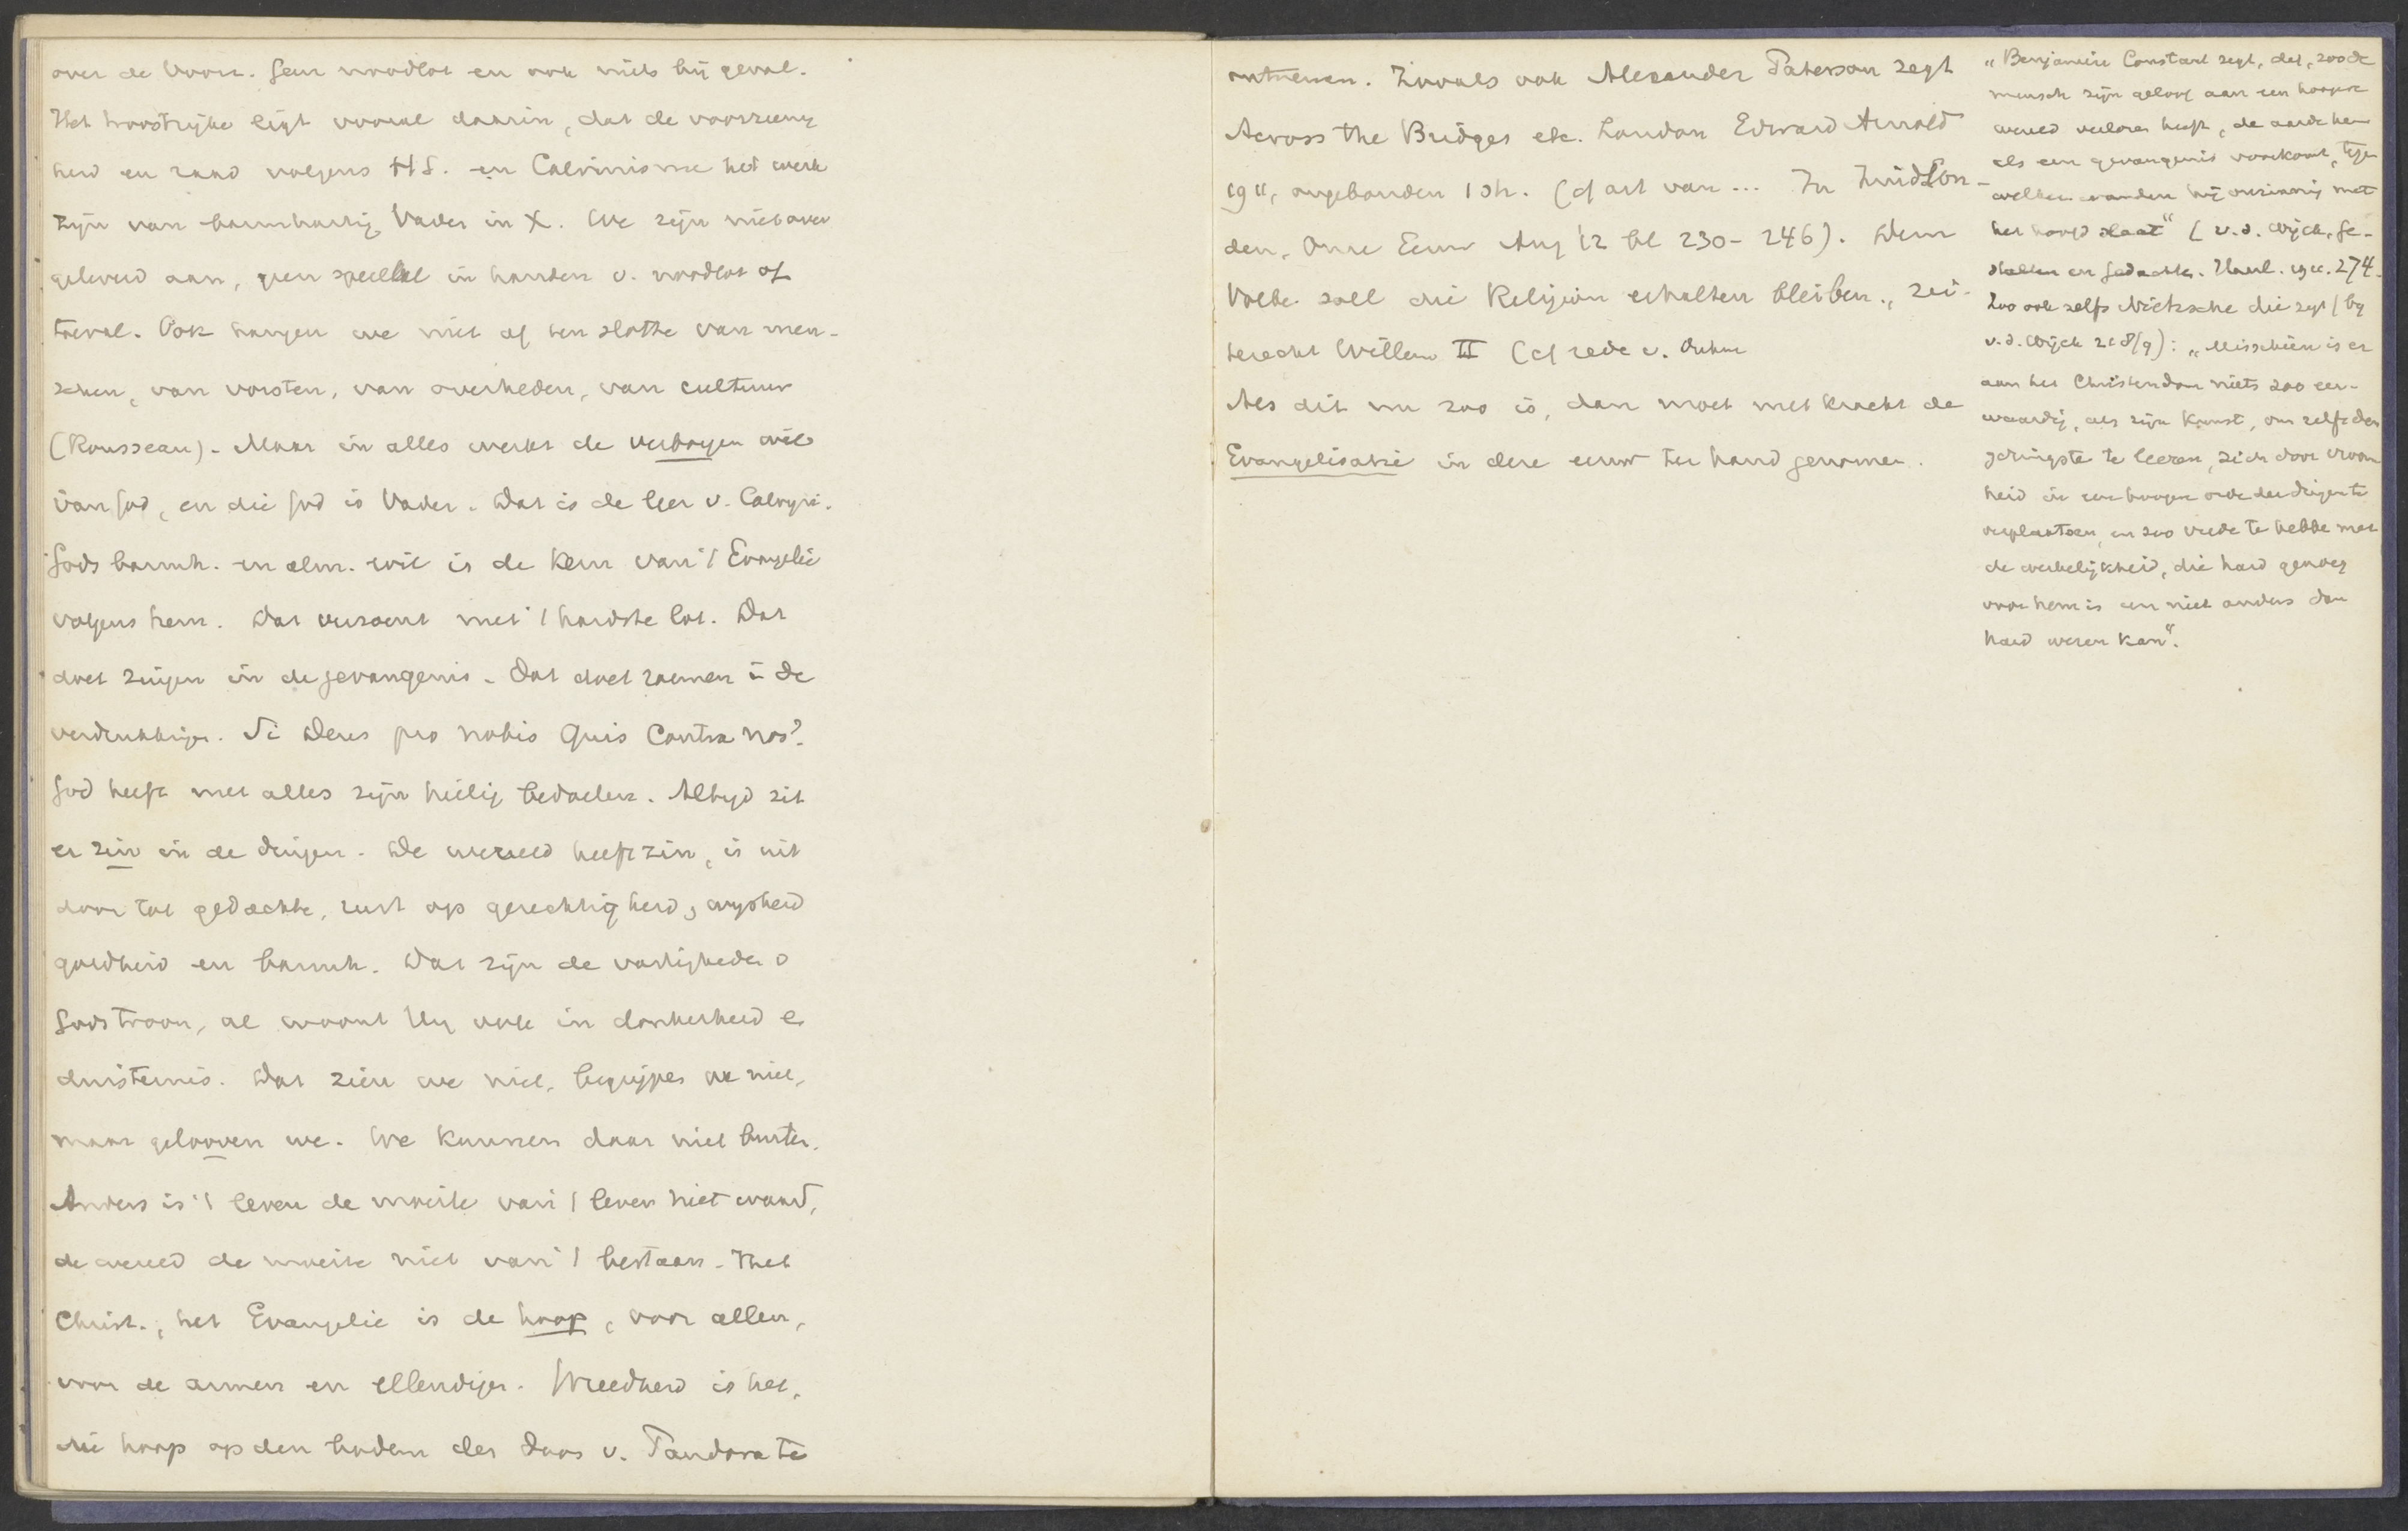 over de Voorz. Geen noodlot en ook niets bij geval.
Het troostrijke ligt vooral daarin, dat de voorzienig
heid en raad volgens H S. en Calvinisme het werk
zijn van barmhartig Vader in X. We zijn niet over
geleverd aan, geen speelbal in handen v. noodlot of
toeval. Ook hangen we niet af ten slotte van men-
schen, van vorsten, van overheden, van cultuur
(Rousseau). Maar in alles werkt de verborgen wil
van God, en die God is Vader. Dat is de leer v. Calvyn.
Gods barmh. en alm. wil is de kern van 't Evangelie
volgens hem. Dat verzoent met 't hardste lot. Dat
doet zingen in de gevangenis. Dat doet roemen in de
verdrukkingen. Si Deus pro nobis Quis Contra nos?
God heeft met alles zijn heilig bedoelen. Altyd zit
er zin in de dingen. De wereld heeft zin, is uit
door tot gedachte, rust op gerechtigheid, wysheid
goedheid en barmh. Dat zijn de vastigheden v
Gods troon, al woont Hy ook in donkerheid en
duisternis. Dat zien we niet, begrijpen we niet,
maar gelooven we. We kunnen daar niet buiten.
Anders is 't leven de moeite van 't leven niet waard,
de wereld de moeite niet van 't bestaan. Het
Christ., het Evangelie is de hoop, voor allen,
voor de armen en ellendigen. Wreedheid is het,
die hoop op den bodem der doos v. Pandora te
ontnemen. Zooals ook Alexander Paterson zegt
Across the Bridges etc. London Edward Arnold
1911, ongebonden 1 sh. (cf art van ... In Zuid Lon-
den, Onze Eeuw Aug '12 bl 230-246). Dem
Volke soll die Religion erhalten bleiben, zei
terecht Willem II (cf rede v.
Als dit nu zoo is, dan moet met kracht de
Evangelisatie in deze eeuw ter hand genomen.
„Benjamin Constant zegt, dat, zoo de
mensch zijn geloof aan een hoogere
wereld verloren heeft, de aarde hem
als een gevangenis voorkomt, tegen
welker wanden hij onzinnig met
het hoofd slaat“ (v.d. Wijck, Ge-
stalten en Gedachten. Haarl. 1911. 274.
Zoo ook zelfs Nietzsche die zegt (by
v.d. Wijck 218/9): „Misschien is er
aan het Christendom niets zoo eer-
waardig, als zijn kunst, om zelfs den
geringste te leeren, zich door vroom
heid in een hoogere orde der dingen te
verplaatsen, en zoo vrede te hebben met
de werkelijkheid, die hard genoeg
voor hem is en niet anders dan
hard wezen kan“.